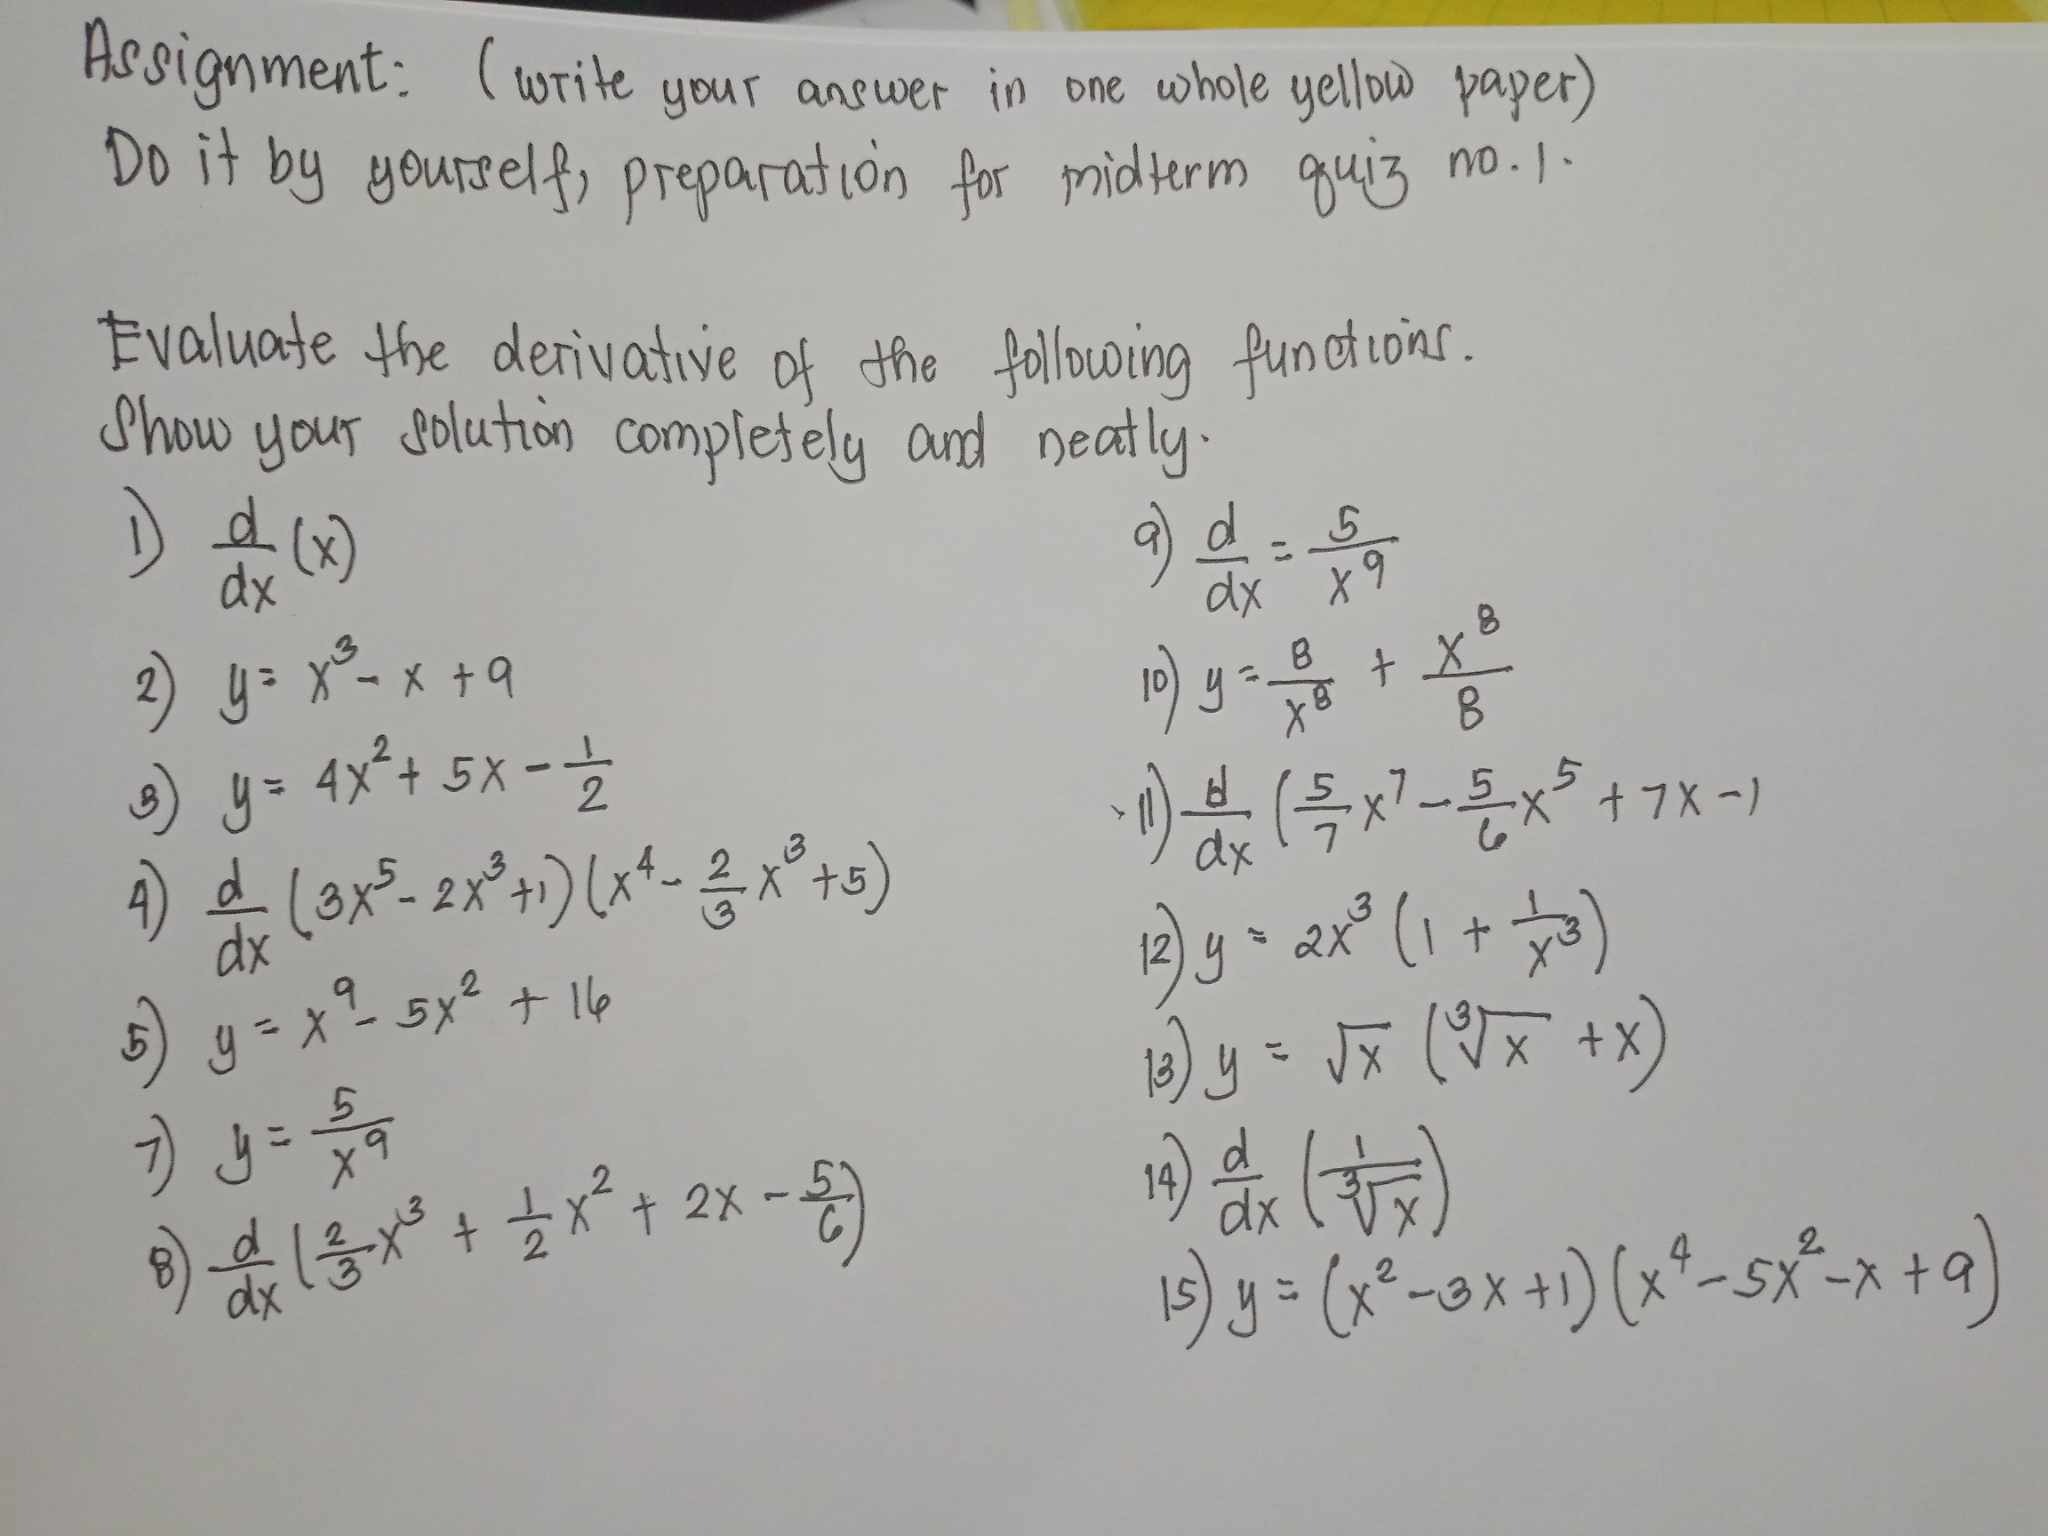 Assignment: (write your answer in one whole yellow paper)
Do it by yourself, preparation for midterm quiz no. 1.
Evaluate the derivative of the following functions.
Show your solution completely and neatly.
1) d/dx (x)
2) y = x³ - x + 9
3) y = 4x² + 5x - 1/2
4) d/dx (3x⁵ - 2x³ + 1)(x⁴ - 2/3 x³ + 5)
5) y = x⁹ - 5x² + 16
7) y = 5/x⁹
8) d/dx (2/3 x³ + 1/2 x² + 2x - 5/6)
9) d/dx = 5/x⁹
10) y = 8/x⁸ + x⁸/8
11) d/dx (5/7 x⁷ - 5/6 x⁵ + 7x - 1
12) y = 2x³ (1 + 1/x³)
13) y = √x (∛x + x)
14) d/dx (1/∛x)
15) y = (x² - 3x + 1)(x⁴ - 5x² - x + 9)